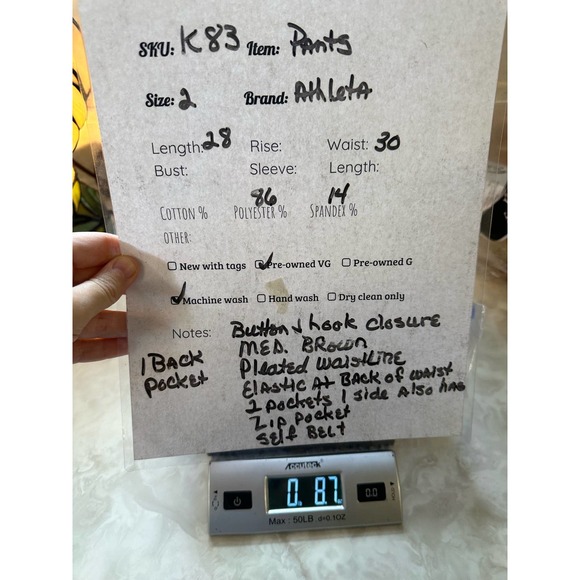 SKU: K83 Item: Pants
Size: 2 Brand: AthletA
Length: 28 Rise: Waist: 30
Bust: Sleeve: Length:
86 14
COTTON % POLYESTER % SPANDEX %
OTHER:
New with tags Pre-owned VG Pre-owned G
Machine wash Hand wash Dry clean only
Notes: Button & hook closure
MED. BROWN
1 BACK POCKET
Pleated WAISTLINE
ElAStic At BACK of WAIST
2 pockets 1 side Also has
Zip pocket
Self BElt
Accuteck
0 8.7
0.0
Max : 50LB d=0.1OZ